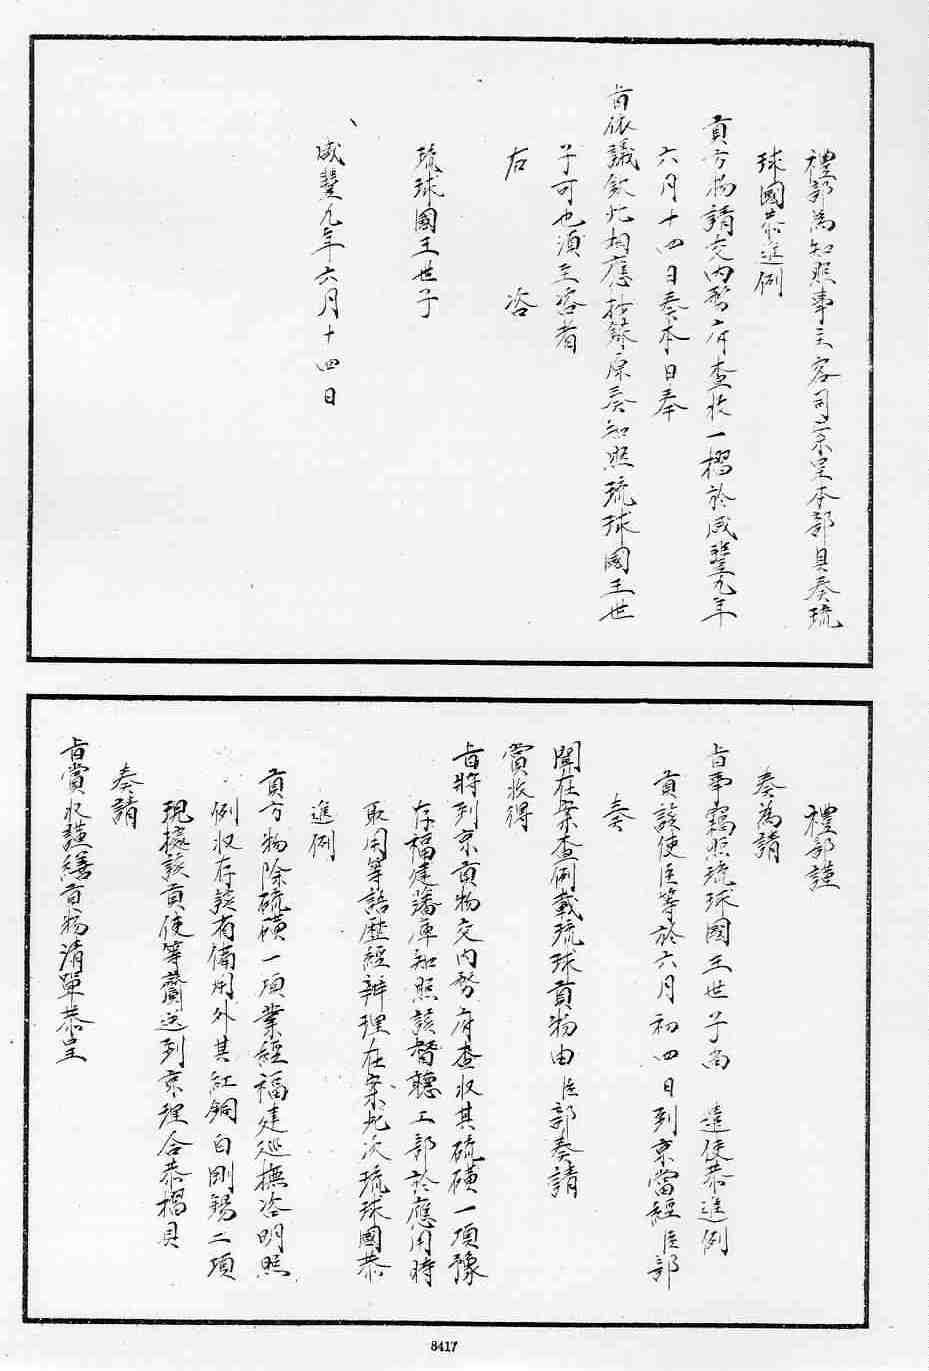 禮部為知照事主客司案呈本部具奏琉
球國恭進例
貢方物請交內務府查收一摺於咸豐九年
六月十四日具奏本日奉
旨依議欽此相應抄錄原奏知照琉球國王世
子可也須至咨者
右 咨
琉球國王世子
咸豐九年六月十四日
禮部謹
奏為請
旨事竊照琉球國王世子尚 遣使恭進例
貢該使臣等於六月初四日到京當經臣部
奏
聞在案查例載琉球貢物由臣部奏請
賞收得
旨將到京貢物交內務府查收其硫磺一項豫
存福建藩庫知照該督聽工部於應用時
取用等語歷經辦理在案此次琉球國恭
進例
貢方物除硫磺一項業經福建巡撫咨明照
例收存該省備用外其紅銅白剛錫二項
現據該貢使等齎送到京理合恭摺具
奏請
旨賞收謹繕貢物清單恭呈
8417